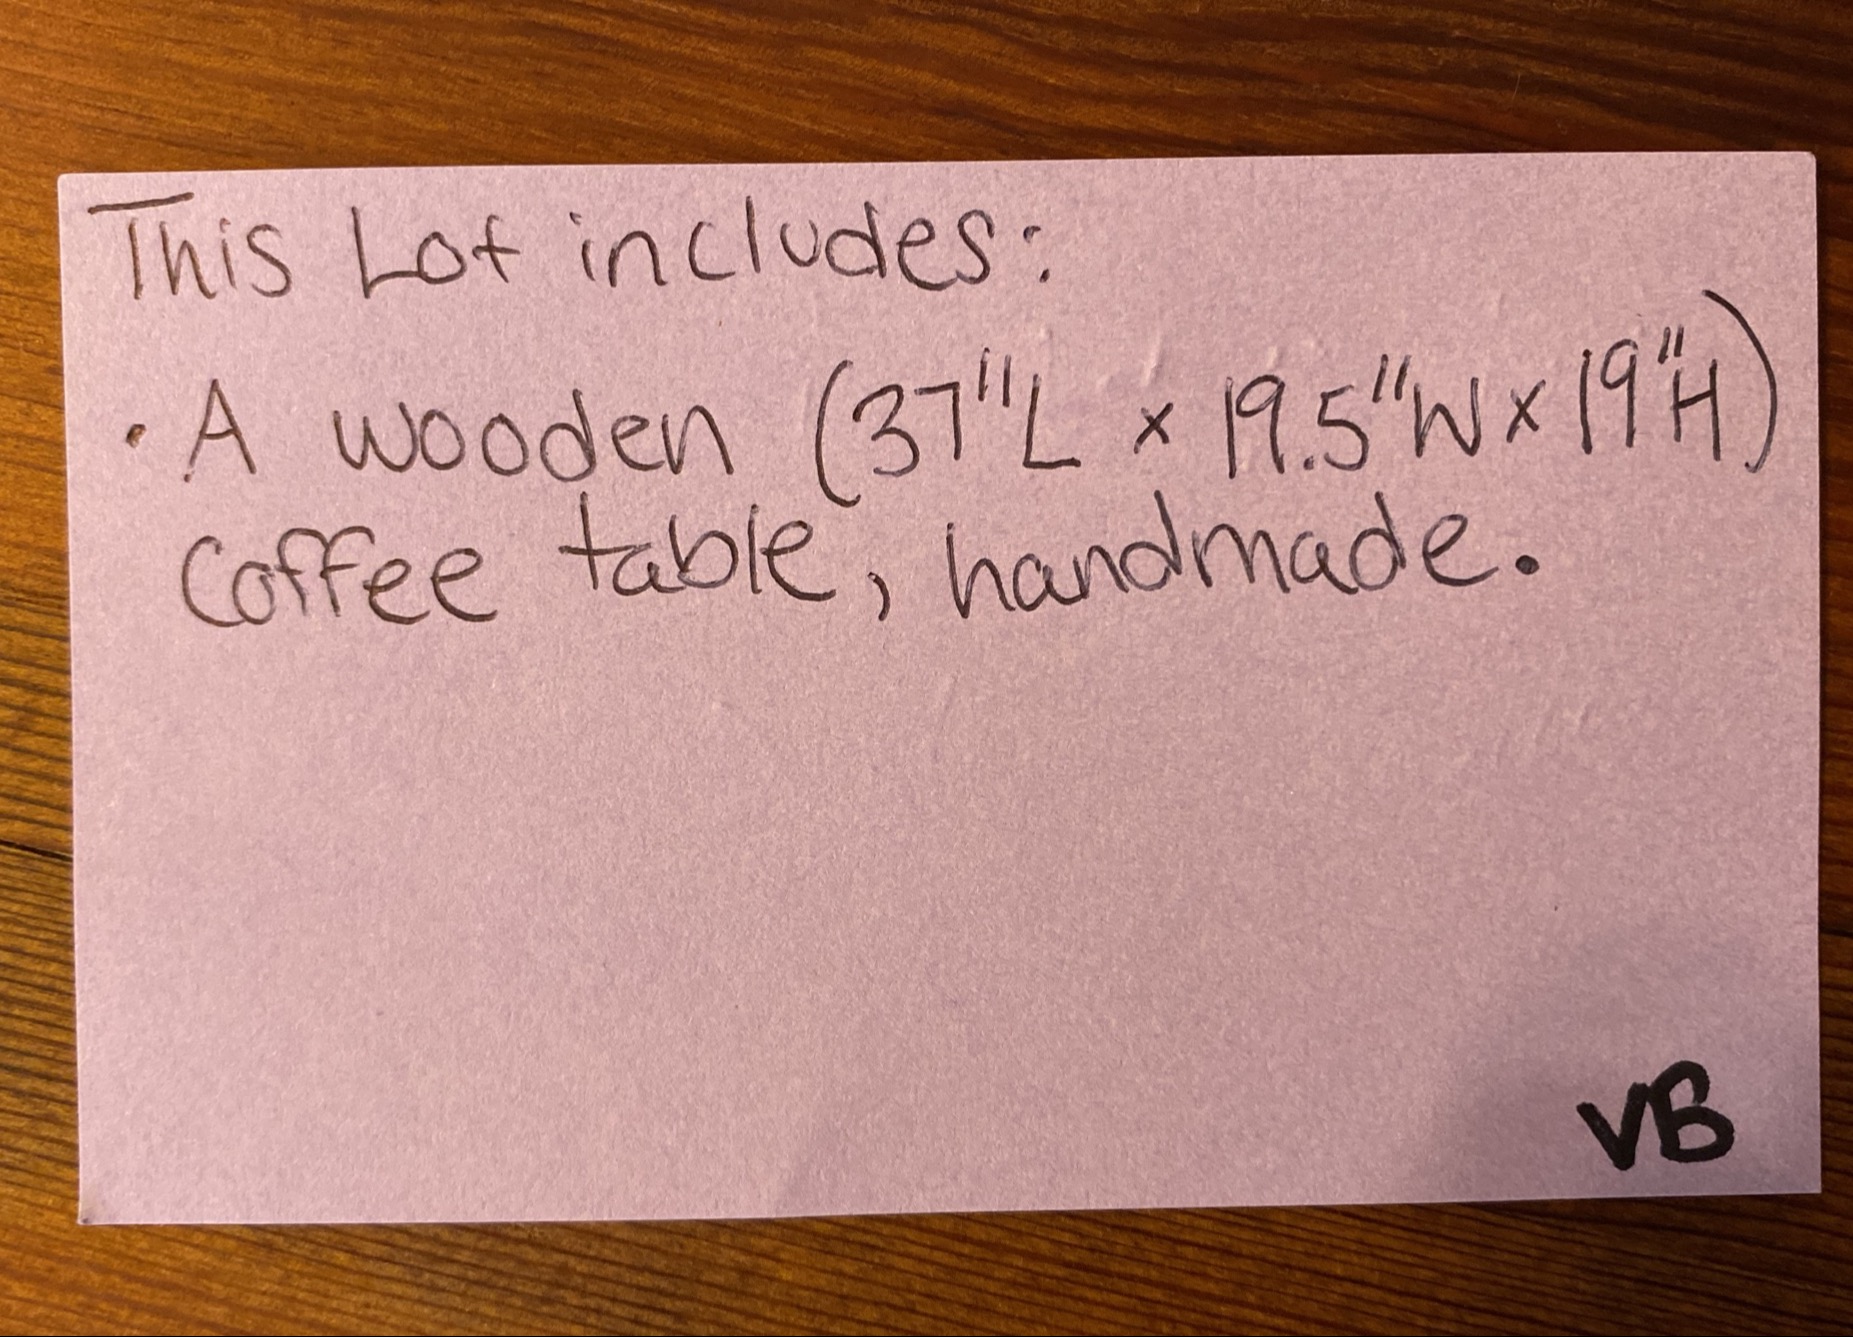 This Lot includes:
• A wooden (37"L x 19.5"W x 19"H)
Coffee table, handmade.
VB